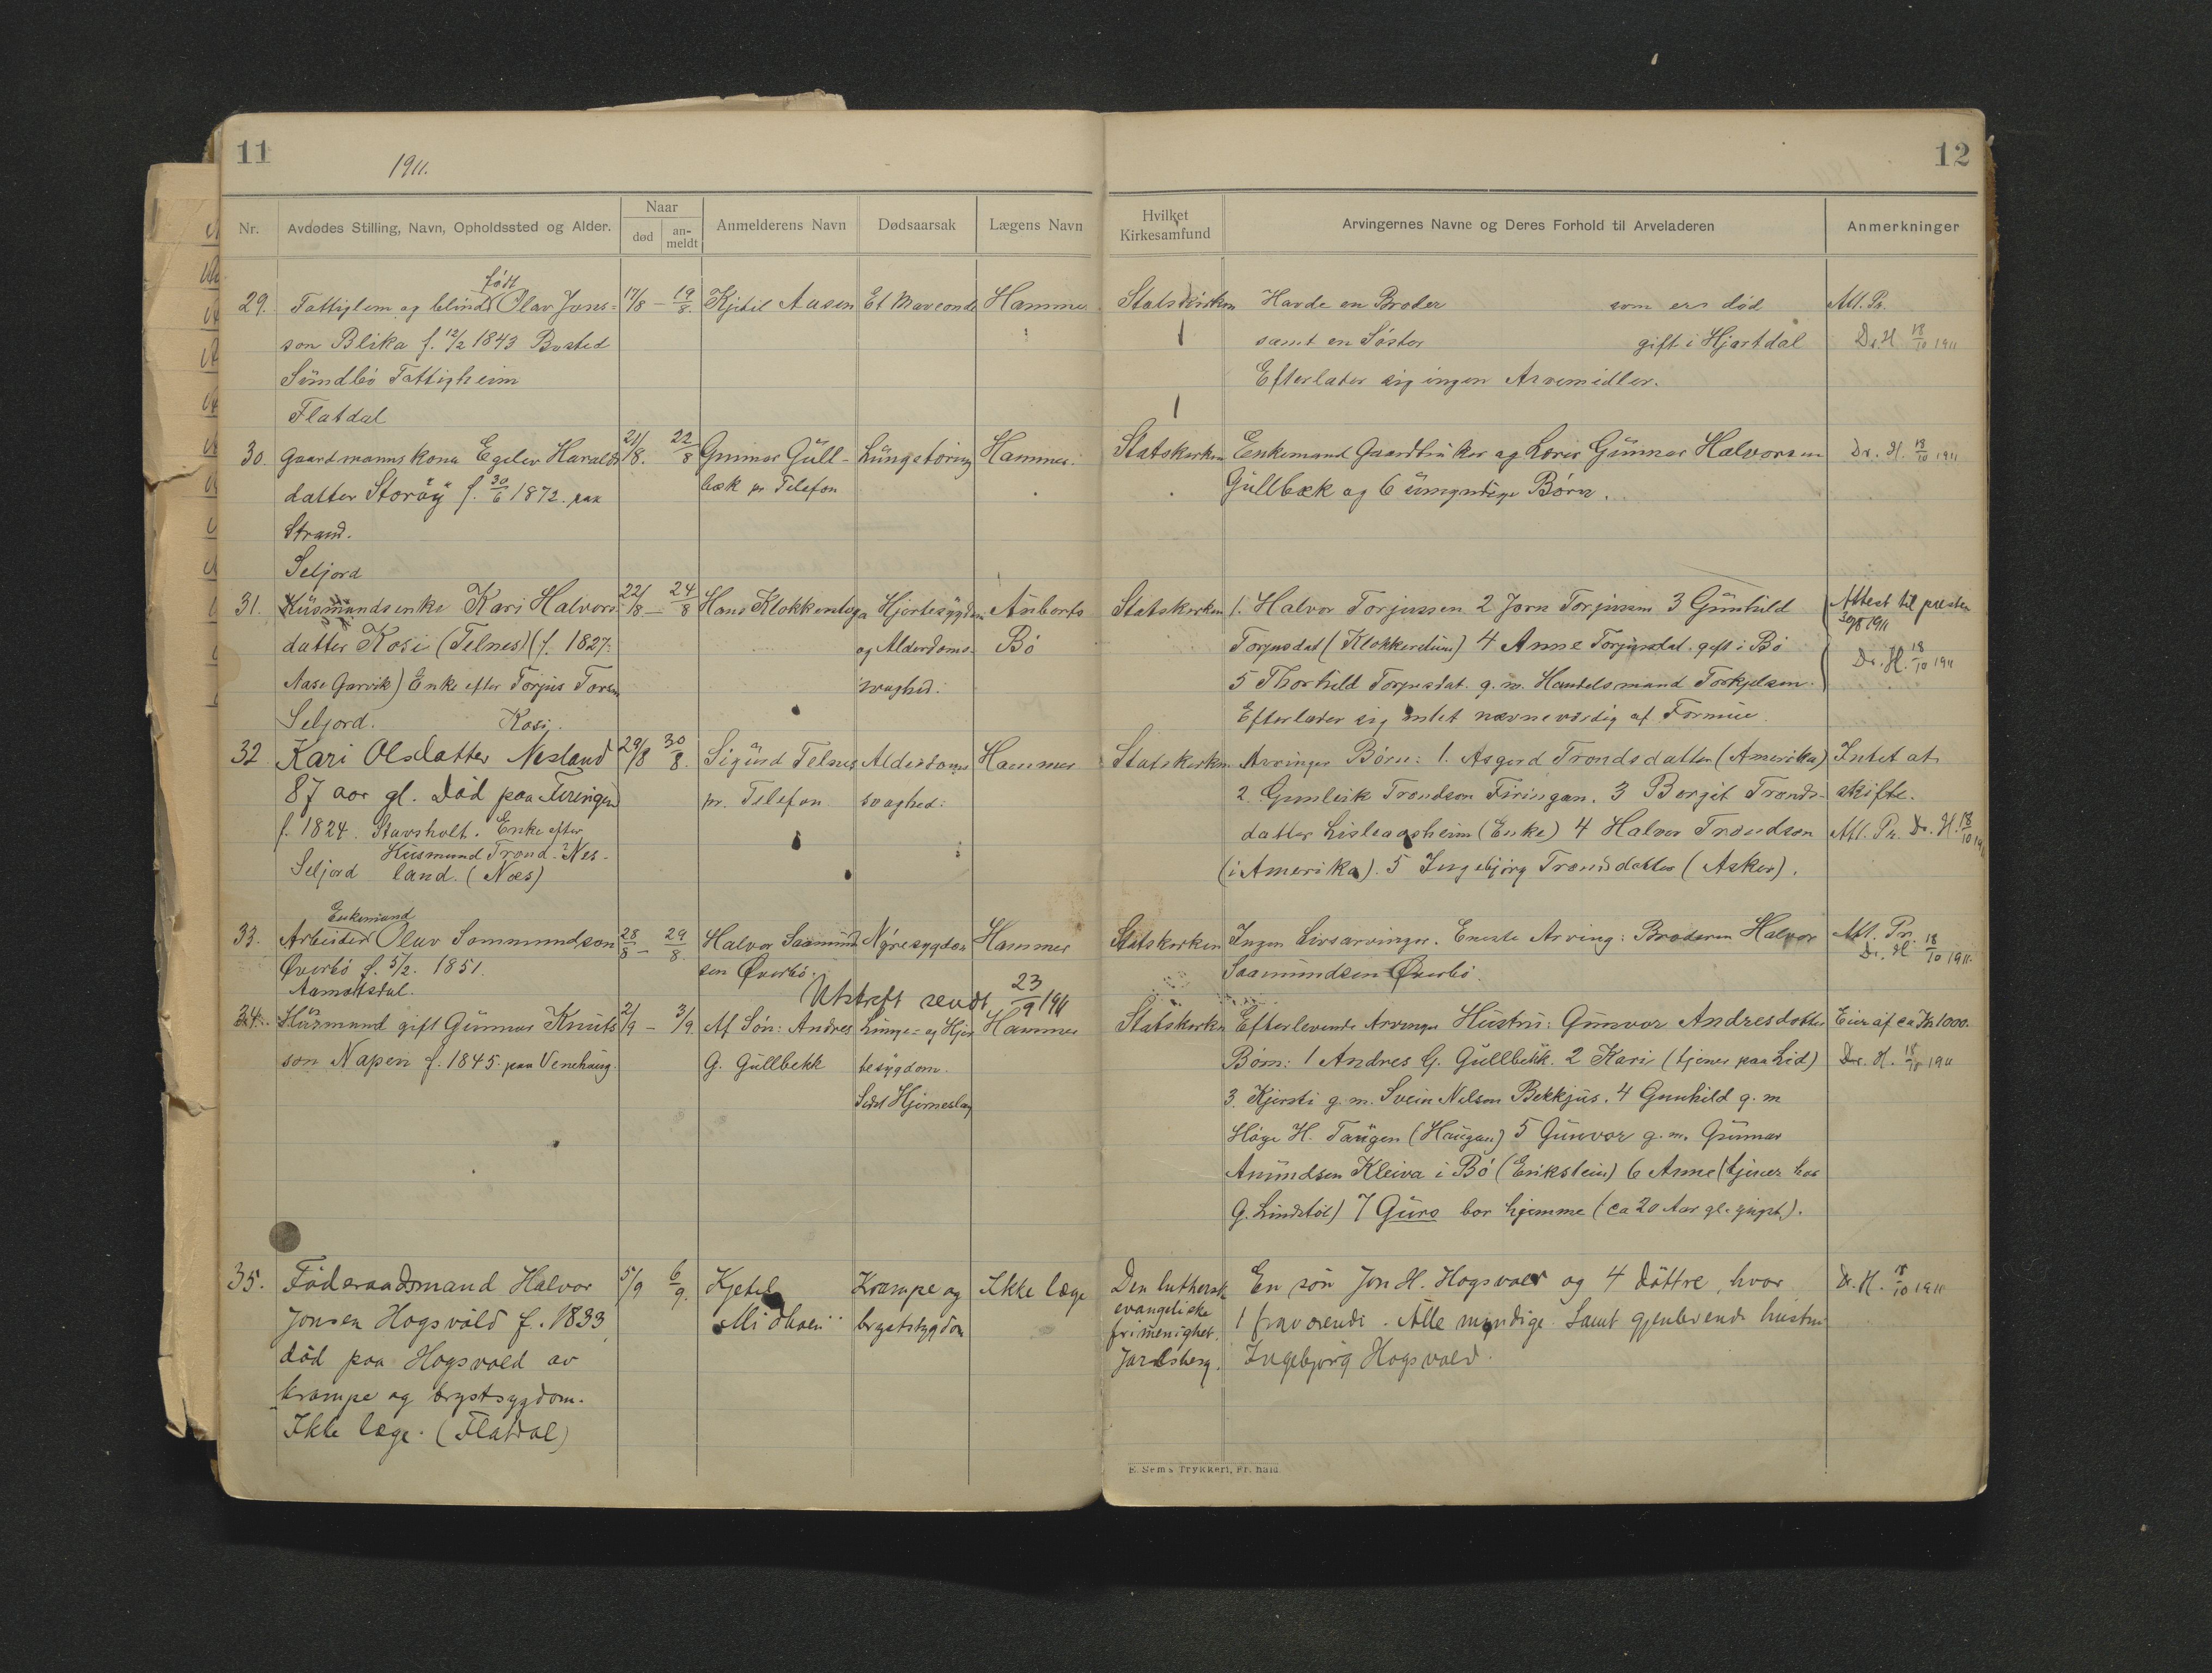 11
1911.
12
Nr.
Avdødes Stilling, Navn, Opholdssted og Alder.
Naar
død
an-
meldt
Anmelderens Navn
Dødsaarsak
Lægens Navn
Hvilket
Kirkesamfund
Arvingernes Navne og Deres Forhold til Arveladeren
Anmerkninger
født
29. Fattiglem og blind Olav Jons= 17/8 — 19/8. Kjetil Aasen Hamme Statskirken Havde en Broder som er død Att. Pr.
son Blika f. 12/2 1843 Bosted samt en Søster gift i Hjartdal Dr. H 18/10 1911
Sundbö Fattigheim Efterlater sig ingen Arvemidler.
Flatdal
30. Gaardmannskona Egelev Haralds 21/8. 22/8 Gunnar Gull- Lungetæring Hammer. Statskirken Enkemand Gaardbruker og Gunnar Halvorsen Dr. H. 18/10 1911
datter Storöy f. 30/6 1872. paa bæk pr Telefon Gullbæk og 6 umyndige Börn.
Strand.
Seljord
31. Husmandsenke Kari Halvors- 22/8 — 24/8 Hans Hjertesygdom Statskirken 1. Halvor Torjussen 2 Jorn Torjussen 3 Gunhild Attest til presten
datter Kosi (Telnes) (f. 1827. og Alderdoms- Bö Torjusdat 4 Anne Torjusdat. gift i Bö Dr. H. 18/10 1911
Garvik) Enke efter Torjus svaghed. 5 Thorhild Torjusdat. g. m. Handelsmand Torkjelsen.
Seljord. Kosi. Efterlader sig intet nævneværdig af Formue.
32. Kari Olsdatter Nesland 29/8 30/8. Sigurd Telnes Alderdoms Hammer Statskirken Arvinger Börn: 1. Asgerd Trondsdatter (Amerika) Intet at
87 aar gl. död paa Firingen pr. Telefon svaghed. 2. Gunleik Trondson Firingan. 3 Borgit Tronds- skifte.
f. 1824. Stavsholt. Enke efter datter Lisleaasheim (Enke) 4 Halvor Trondson Att. Pr. Dr. H. 18/10 1911
Husmand Trond Nes-
Seljord land. (Næs) (i Amerika). 5 Ingebjörg Trondsdatter (Asker).
Enkemand
33. Arbeider Olav Sommundson 28/8 — 29/8. Halvor Saamund Nyresygdom Hammer Statskirken Ingen Livsarvinger. Eneste Arving: Broderen Halvor Att. Pr.
Øverbö f. 5/2. 1851. sen Øverbö. Saamundsen Øverbö. Dr. H 18/10 1911.
Aamotsdal. Utskrift sendt 23/9 1911
34. Husmand gift Gunnar Knuts 2/9 — 3/9. Af Sön: Andres Lunge= og Hjer Hammer Statskirken Efterlevende Arvinger Hustru: Gunvor Andresdatter Eier af ca Kr 1000.
son Napen f. 1845. paa Venehaug. G. Gullbekk tesygdom. Börn: 1 Andres G. Gullbekk. 2 Kari (tjener paa Lid) Dr. H. 18/10 1911
Sidst Hjerneslag 3. Kjersti g. m. Svein Nelson Bekkjus. 4 Gunhild g. m
Höge H. Taugen (Haugan) 5 Gunvor g. m. Gunnar
Amundsen Kleiva i Bö (Erikstein) 6 Anne (tjener hos
G. Lindstöl) 7 Guro bor hjemme (ca 20 Aar gl. ).
35. Föderaadsmand Halvor 5/9 6/9. Kjetel Krampe og Ikke læge Den luthersk En sön Jon H. Hogsvold og 4 döttre, hvor Dr. H. 18/10 1911
Jonsen Hogsvold f. 1833 brystsygdom evangeliske 1 fraværende. Alle myndige. Samt gjenlevende hustru
död paa Hogsvold av frimenighet. Ingebjörg Hogsvold.
krampe og brystsygdom. Jarlsberg.
Ikke læge. (Flatdal)
E. Sem's Trykkeri, Fr. hald.